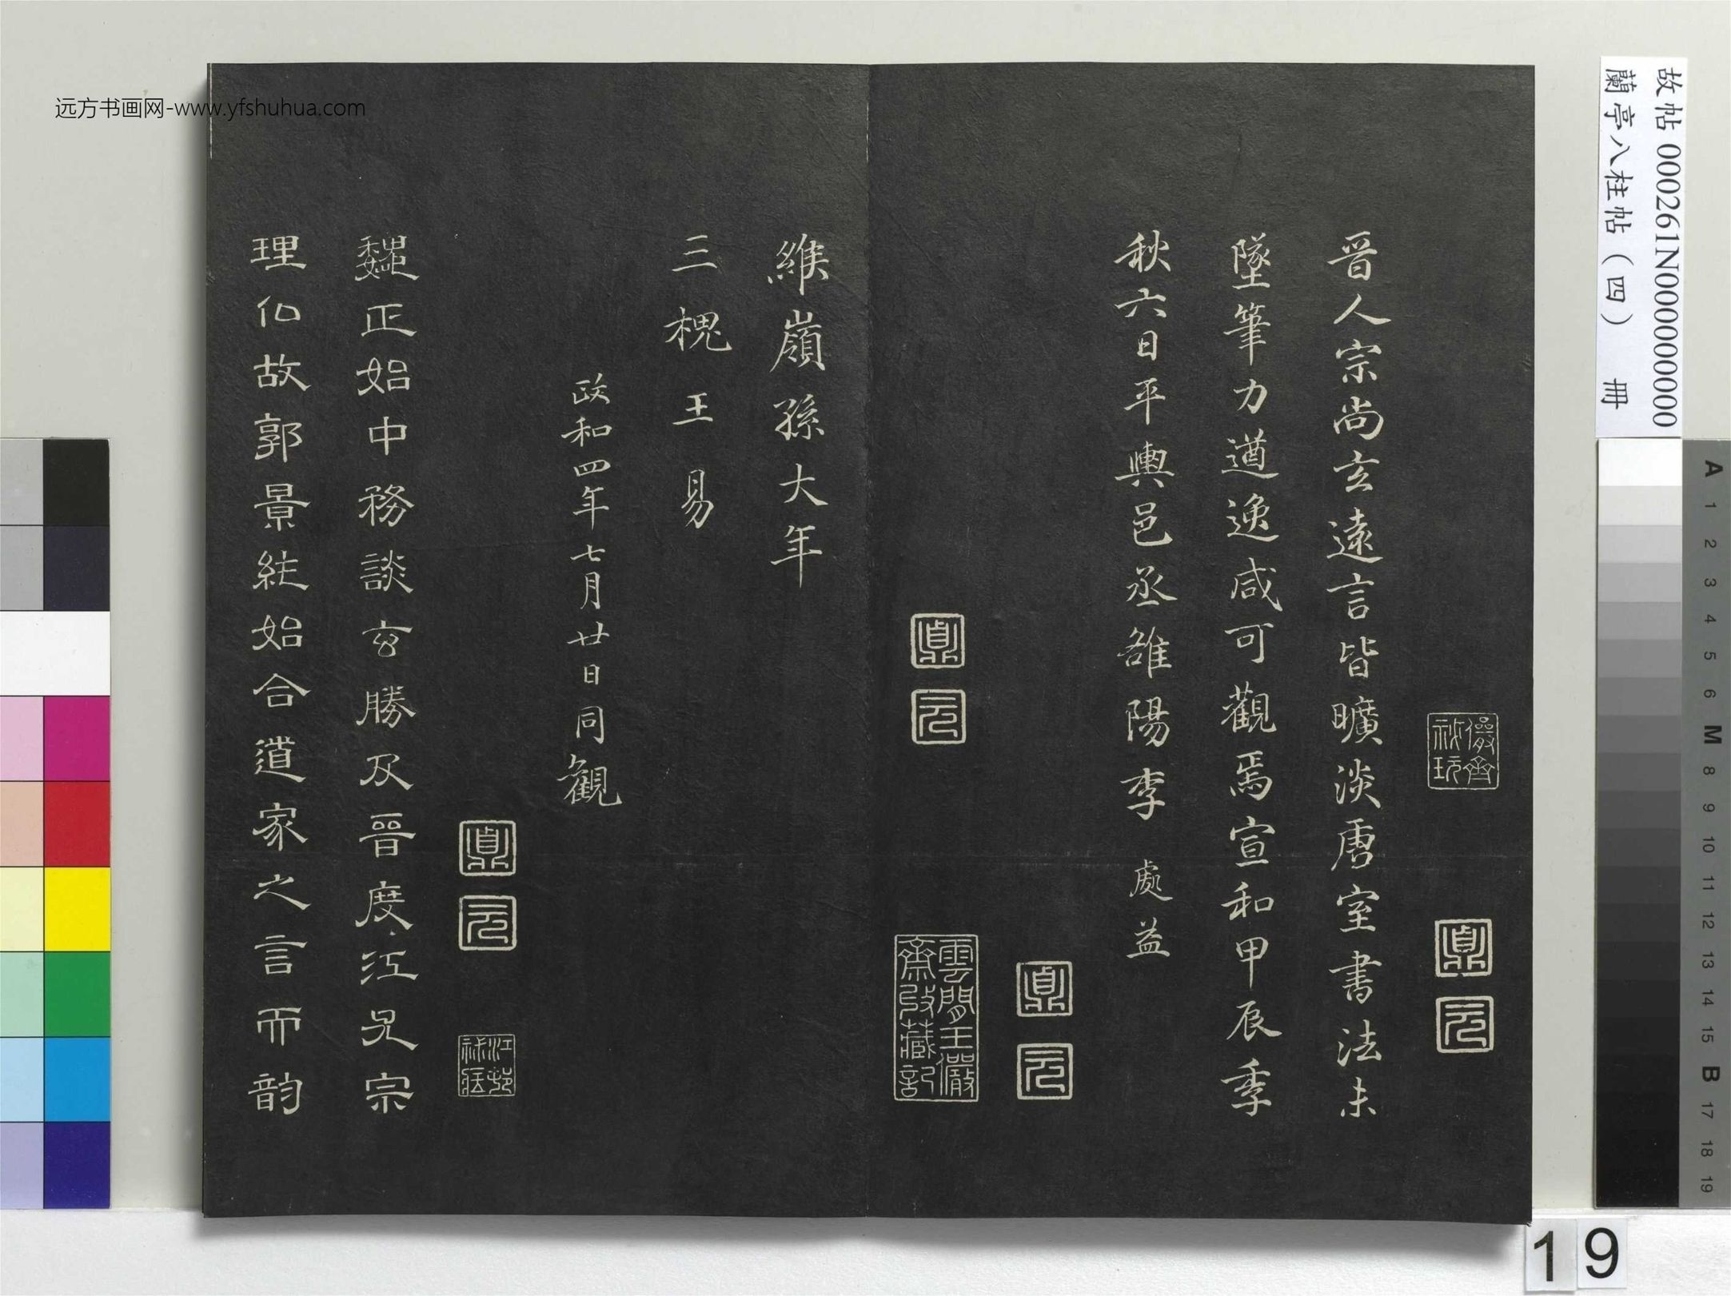 晉人宗尚玄遠言皆曠淡唐室書法未
墜筆力遒逸咸可觀焉宣和甲辰季
秋六日平輿邑丞雒陽李處益
維嶺孫大年
三槐王易
政和四年七月廿日同觀
魏正始中務談玄勝及晉度江尤宗
理仏故郭景純始合道家之言而韵
儼齋祕玩
鼎元
鼎元
鼎元
雲間王儼齋收藏記
鼎元
江邨祕藏
故帖 000261N000000000
蘭亭八柱帖（四） 冊
远方书画网-www.yfshuhua.com
A 1 2 3 4 5 6 M 8 9 10 11 12 13 14 15 B 17 18 19
19